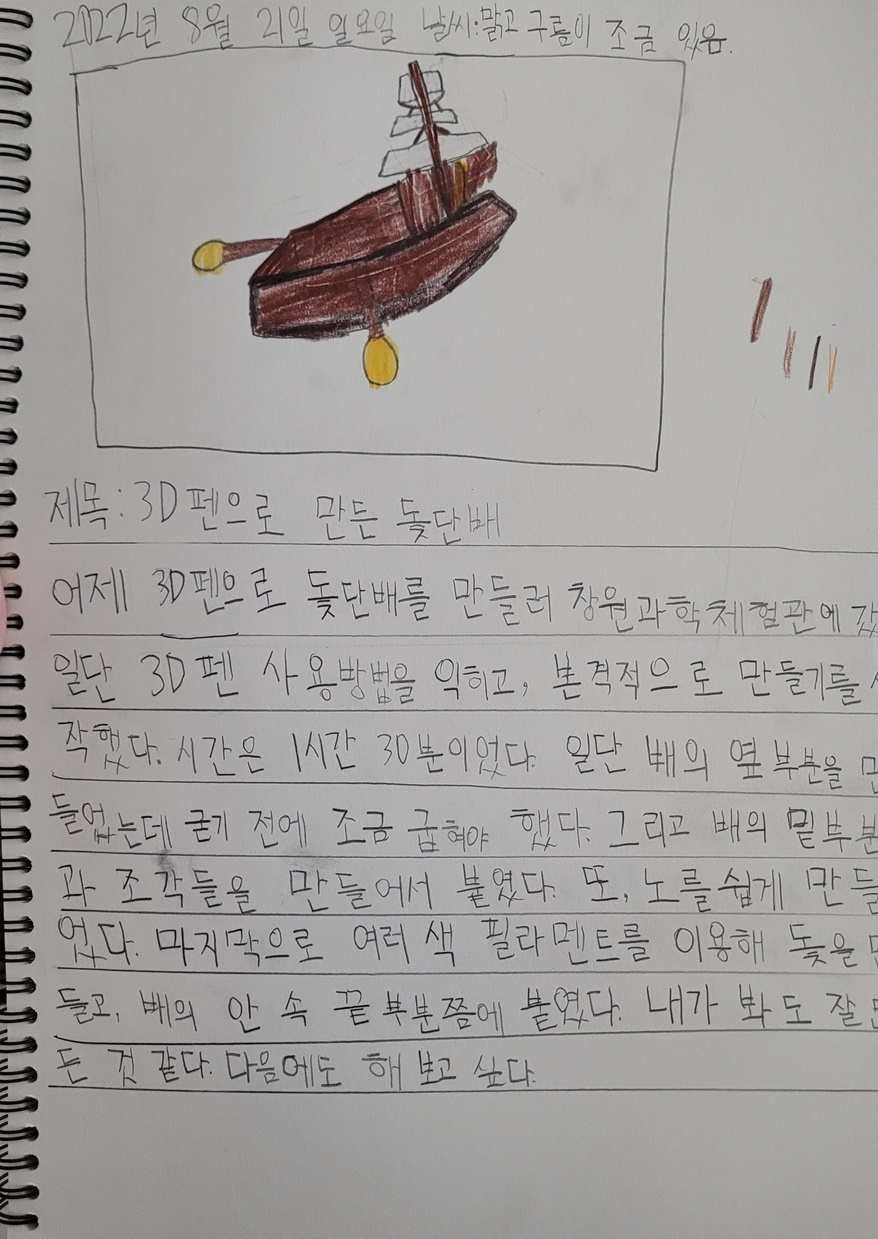 2022년 8월 21일 일요일 날씨:맑고 구름이 조금 있음.
제목: 3D펜으로 만든 돛단배
어제 3D펜으로 돛단배를 만들러 창원과학체험관에 갔
일단 3D펜 사용방법을 익히고, 본격적으로 만들기를
작했다. 시간은 1시간 30분이었다. 일단 배의 옆부분을
들었는데 굳기 전에 조금 굽혀야 했다. 그리고 배의 밑부분
과 조각들을 만들어서 붙였다. 또, 노를 쉽게 만들
었다. 마지막으로 여러 색 필라멘트를 이용해 돛을
들고, 배의 안 속 끝부분쯤에 붙였다. 내가 봐도 잘
든 것 같다. 다음에도 해 보고 싶다.